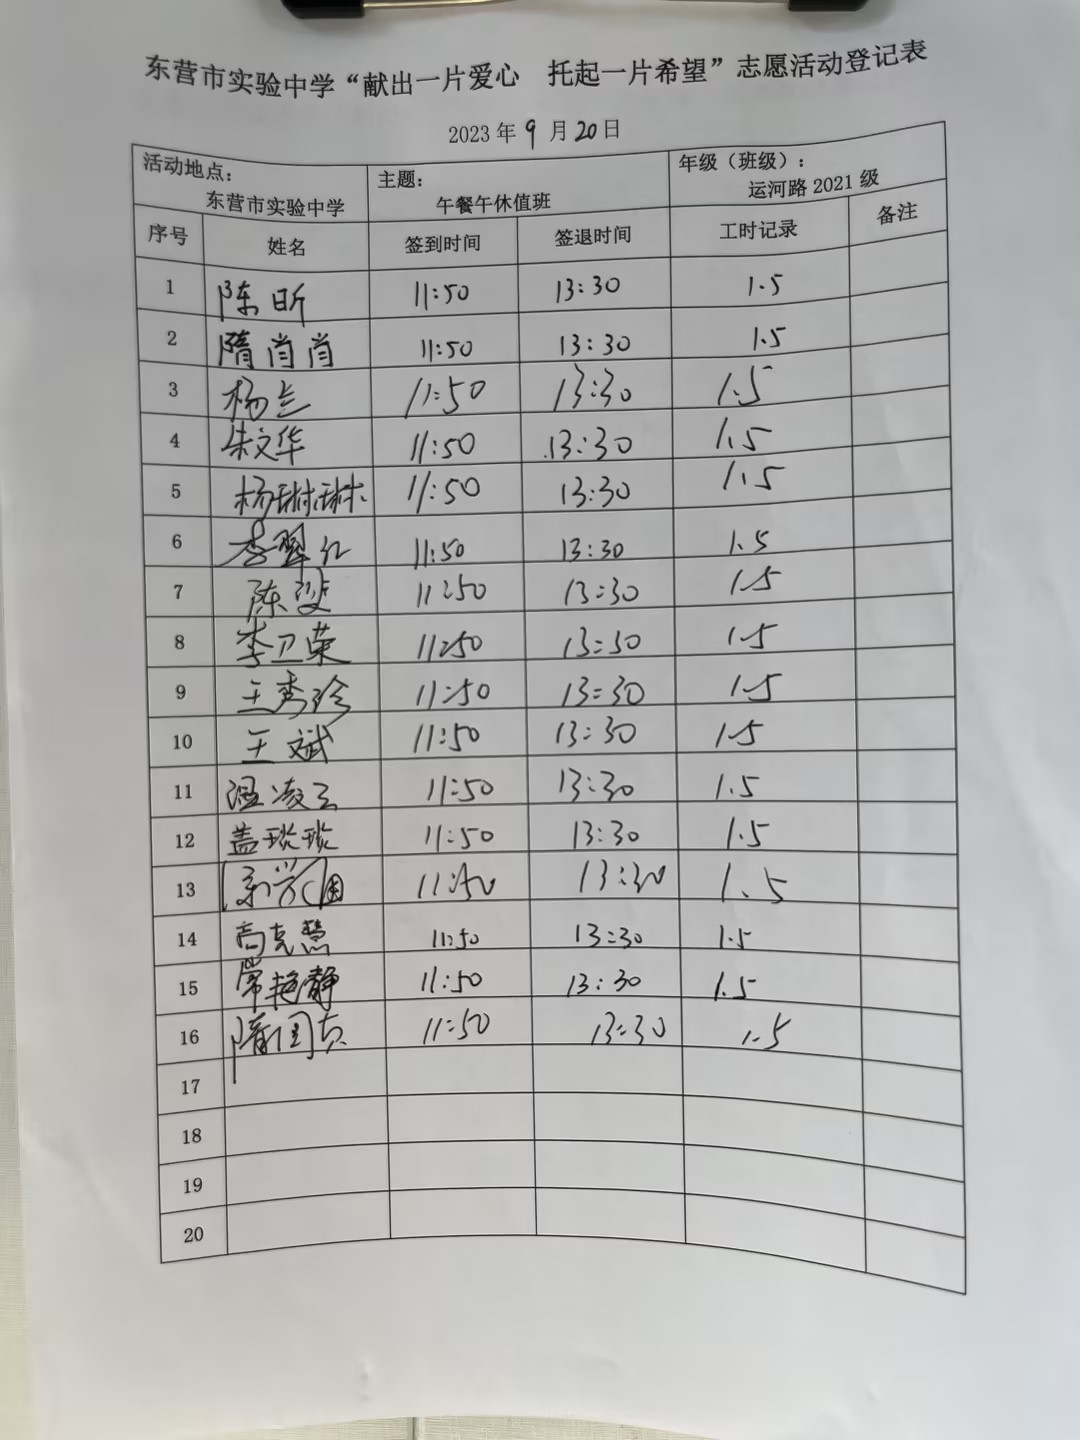 东营市实验中学“献出一片爱心 托起一片希望”志愿活动登记表
2023年9月20日
活动地点： 东营市实验中学 主题： 午餐午休值班 年级（班级）： 运河路2021级
序号 姓名 签到时间 签退时间 工时记录 备注
1 陈昕 11:50 13:30 1.5
2 隋肖肖 11:50 13:30 1.5
3 杨兰 11:50 13:30 1.5
4 朱文华 11:50 13:30 1.5
5 杨琳琳 11:50 13:30 1.5
6 李翠红 11:50 13:30 1.5
7 陈雯 11:50 13:30 1.5
8 李卫荣 11:50 13:30 1.5
9 王秀珍 11:50 13:30 1.5
10 王斌 11:50 13:30 1.5
11 温凌云 11:50 13:30 1.5
12 盖琰琰 11:50 13:30 1.5
13 11:50 13:30 1.5
14 高克慧 11:50 13:30 1.5
15 常艳静 11:50 13:30 1.5
16 隋国贞 11:50 13:30 1.5
17
18
19
20